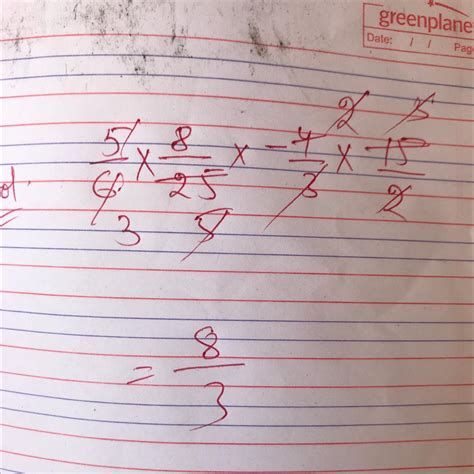 greenplane
Date: / / Page
2 5
5/6 × 8/25 × -4/3 × 15/2
3 5
= 8/3